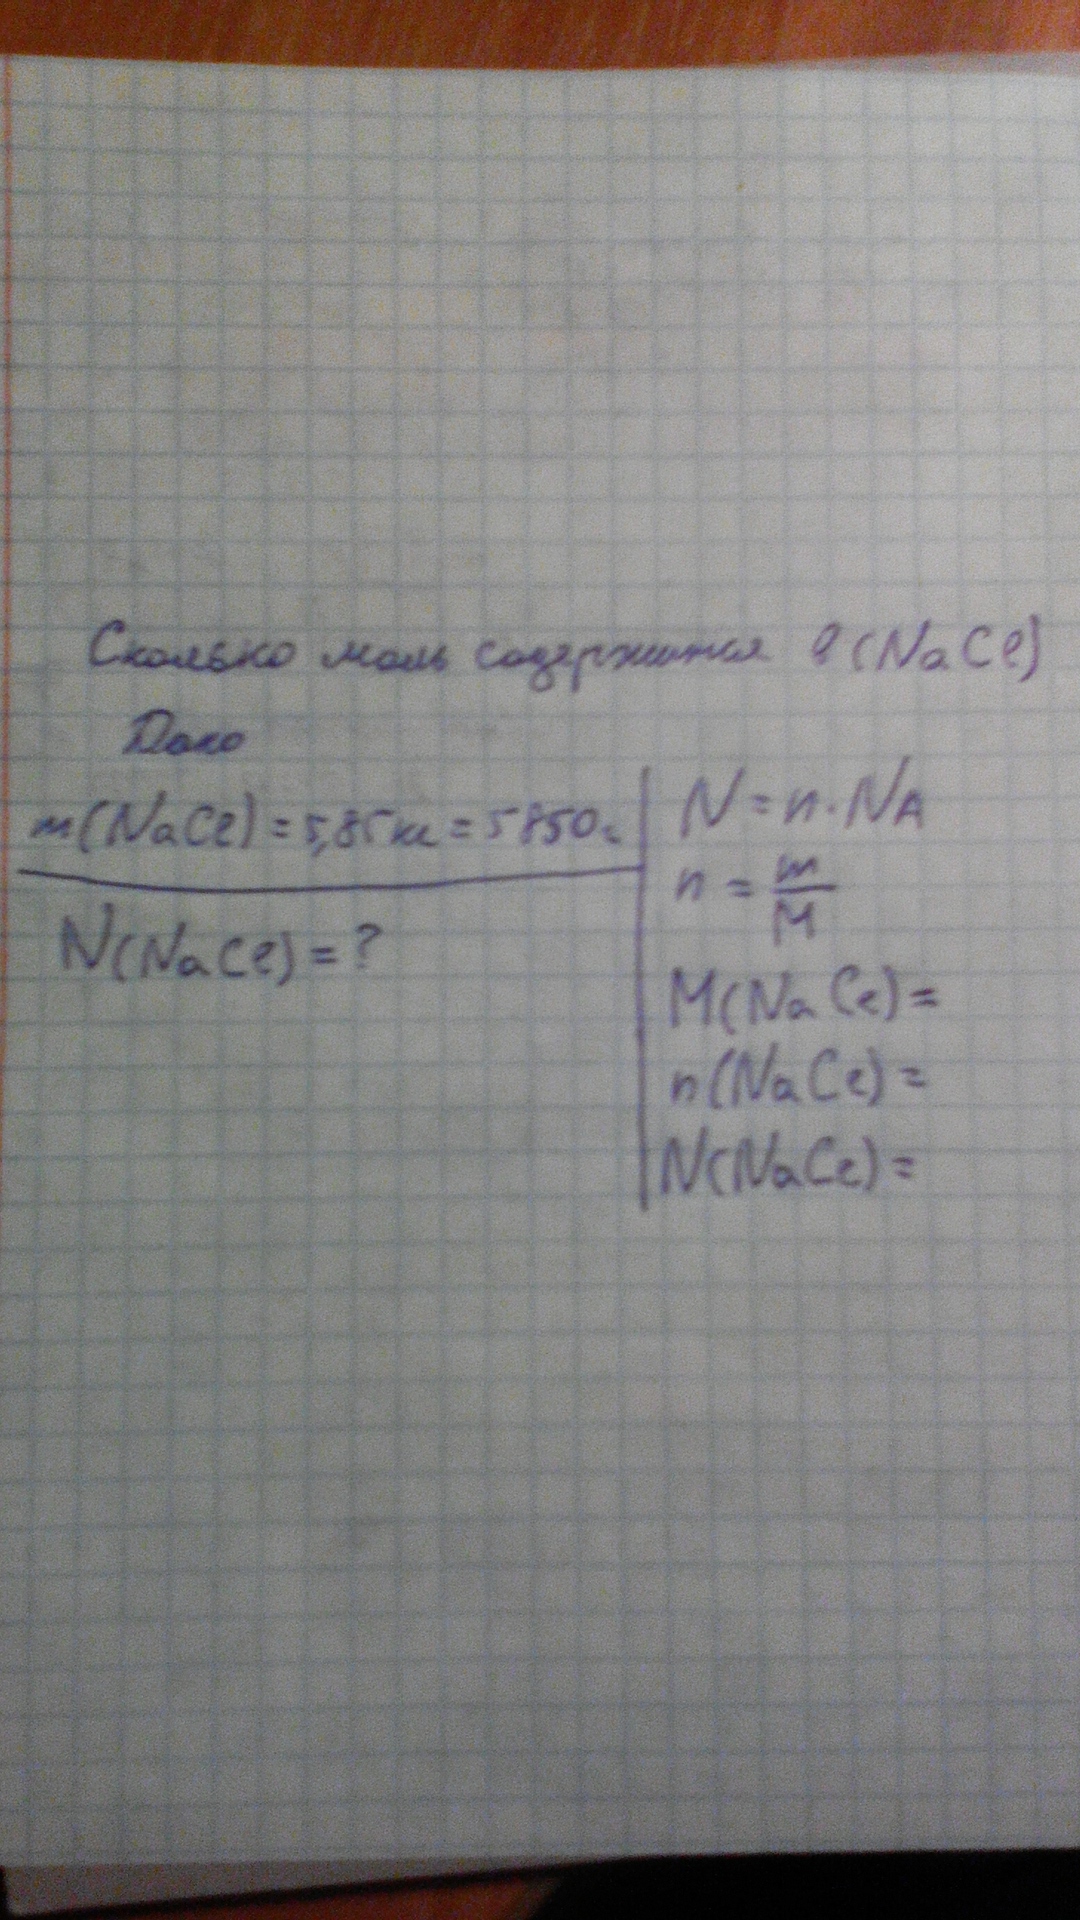 Сколько моль содержится в (NaCl)
Дано
m(NaCl) = 5,85кг = 5850г
N(NaCl) = ?
N = n · NA
n = m/M
M(NaCl) =
n(NaCl) =
N(NaCl) =